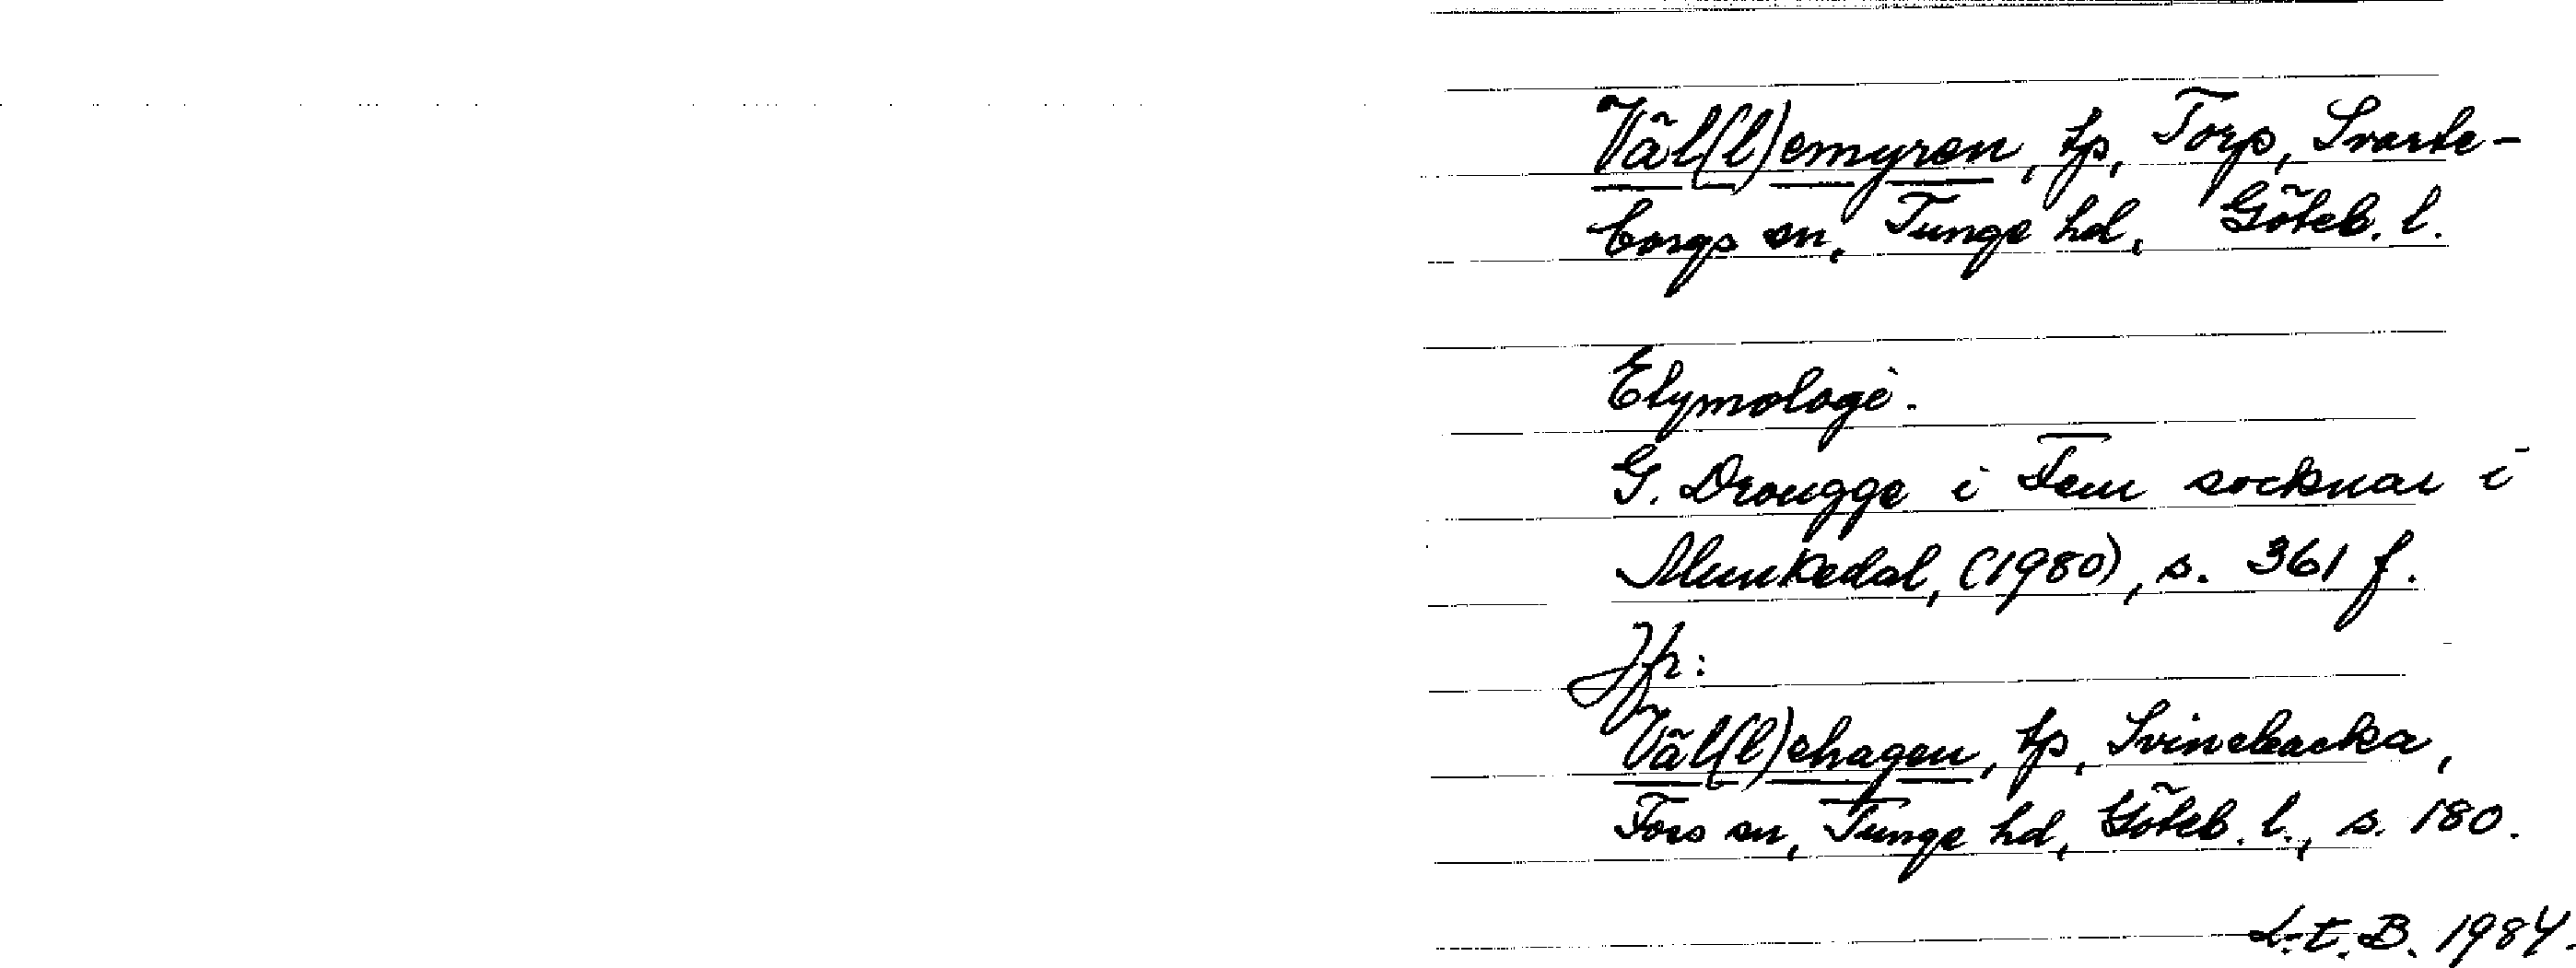 Väl(l)emyren, tp, Torp, Svarte-
borgs sn, Tunge hd, Göteb. l.
Etymologi.
G. Drougge i Fem socknar i
Munkedal, (1980), s. 361 f.
Jfr:
Väl(l)ehagen, tp, Svinebacka,
Fors sn, Tunge hd, Göteb. l., s. 180.
L-t. B. 1984.